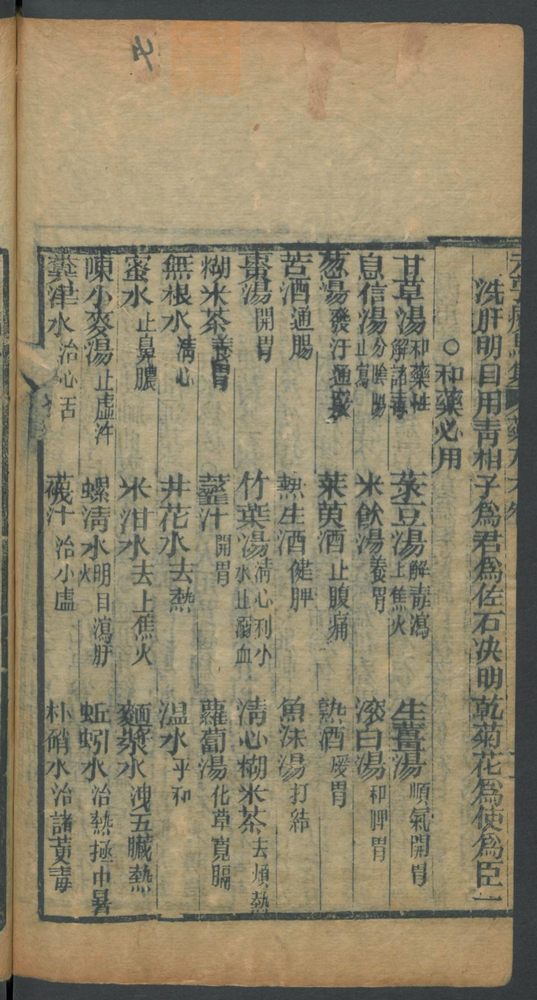 洗肝明目用青相子爲君爲佐石决明乾菊花爲使爲臣一
○和藥必用
甘草湯和藥性解諸毒 菉豆湯解毒瀉上焦火 生薑湯順氣開胃
息信湯分陰陽止瀉 米飲湯養胃 滚白湯和脾胃
葱湯發汗通竅 茱萸酒止腹痛 熟酒煖胃
苦酒通腸 熱生酒健脾 魚沫湯打結
棗湯開胃 竹葉湯清心利小水止溺血 清心糊米茶去煩熱
糊米茶養胃 虀汁開胃 蘿蔔湯化草寬膈
無根水清心 井花水去熱 温水平和
蜜水止鼻膿 米泔水去上焦火 麵漿水洩五臟熱
陳小麥湯止虛汗 螺清水明目瀉肝火 蚯蚓水治熱極中暑
糞津水治心舌 汁治小 朴硝水治諸黃毒